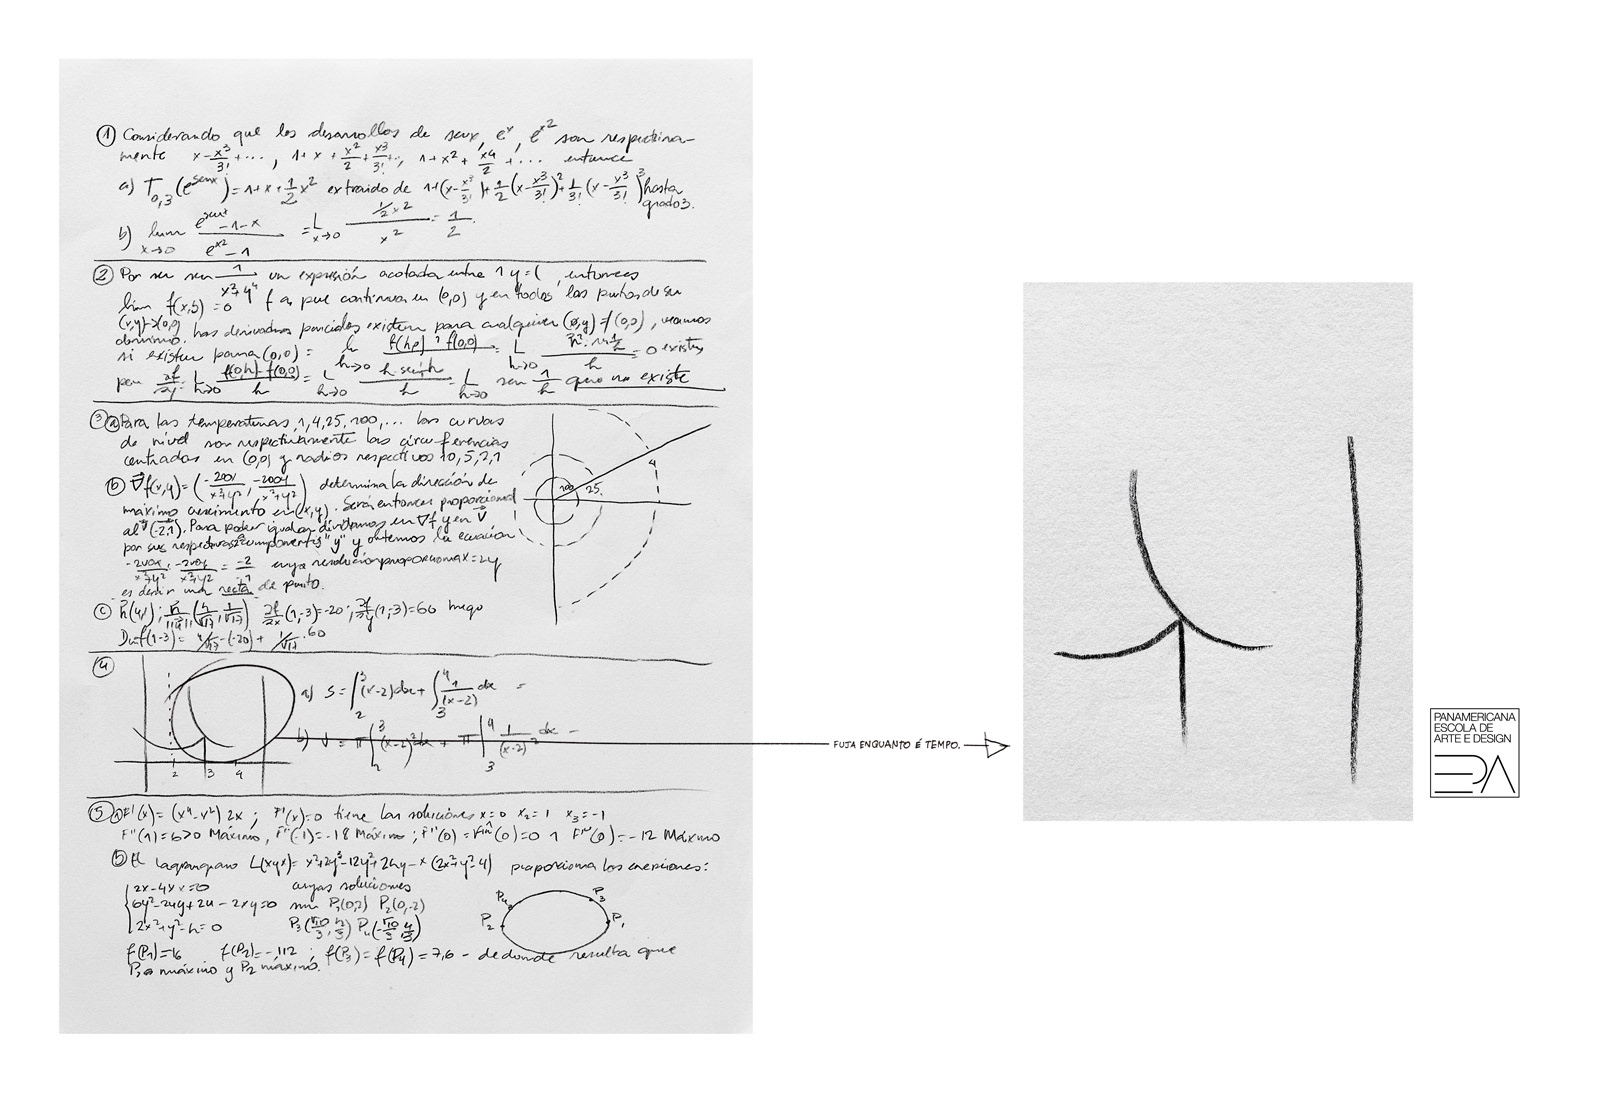 ① Considerando que los desarrollos de senx, eˣ, e^x² son respectiva-
mente x-x³/3!+..., 1+x+x²/2+x³/3!+.., 1+x²+x⁴/2+... entonces
a) T₀,₃(e^senx)=1+x+1/2x² extraido de 1+(x-x³/3!)+1/2(x-x³/3!)²+1/3!(x-x³/3!)³ hasta
grado 3.
b) lim x→0 e^senx-1-x / e^x²-1 = L x→0 1/2x² / x² = 1/2.
② Por ser sen 1/x²+y⁴ un expresión acotada entre 1 y=( entonces
lim f(x,y)=0 f es pue continua en (0,0) y en todos los puntos de su
(x,y)→(0,0)
dominio. Las derivadas parciales existen para cualquier (x,y)≠(0,0), veamos
si existen para (0,0)= h→0 L h→0 h =0 existe
pero L h→0 f(0,h)-f(0,0) / h = L h→0 = L h→0 sen 1/h que no existe
③ ⓐ Para las temperaturas, 1,4,25,100,... las curvas
de nivel son respectivamente las circuferencias
centradas en (0,0) y radios respectivos 10,5,2,1
4
100
25
ⓑ ∇f(x,y)=(-200x/x²+y², -200y/x²+y²) determina la dirección de
máximo crecimiento en (x,y). Será entonces proporcional
al v(-2,1). Para poder igualar dividamos en ∇f y en v
por sus respectivas componentes "y" y obtenemos la ecuacion
-200x/x²+y² : -200y/x²+y² = -2/1 cuya resolución proporciona x=2y
es decir una recta de punto.
ⓒ (4/√17, 1/√17) (1,-3)=-20; (1,-3)=60 luego
4/√17·(-20) + 1/√17·60
④
2 3 4
a) S=∫₂³(x-2)dx+∫₃⁴ 1/(x-2) dx =
b) V=π∫₂³(x-2)²dx + π∫₃⁴ 1/(x-2)² dx =
FUJA ENQUANTO É TEMPO.
⑤ F'(x)=(x⁴-x²)2x; F'(x)=0 tiene las soluciones x=0 x₂=1 x₃=-1
F''(1)=6>0 Máximo, F''(-1)=-18 Máximo; F''(0)= (0)=0 1 (0)=-12 Máximo
ⓑ El lagrangiano proporciona las ecuaciones:
2x-4xx=0 cuyas soluciones
6y²-24y+24-2xy=0 son P₁(0,2) P₂(0,-2)
2x²+y²-4=0 P₃ P₄
P₄ P₃
P₂ P₁
f(P₁)=16 f(P₂)=-112; f(P₃)=f(P₄)=7,6 - de donde resulta que
P₁ es máximo y P₂ máximo.
PANAMERICANA
ESCOLA DE
ARTE E DESIGN
EPA